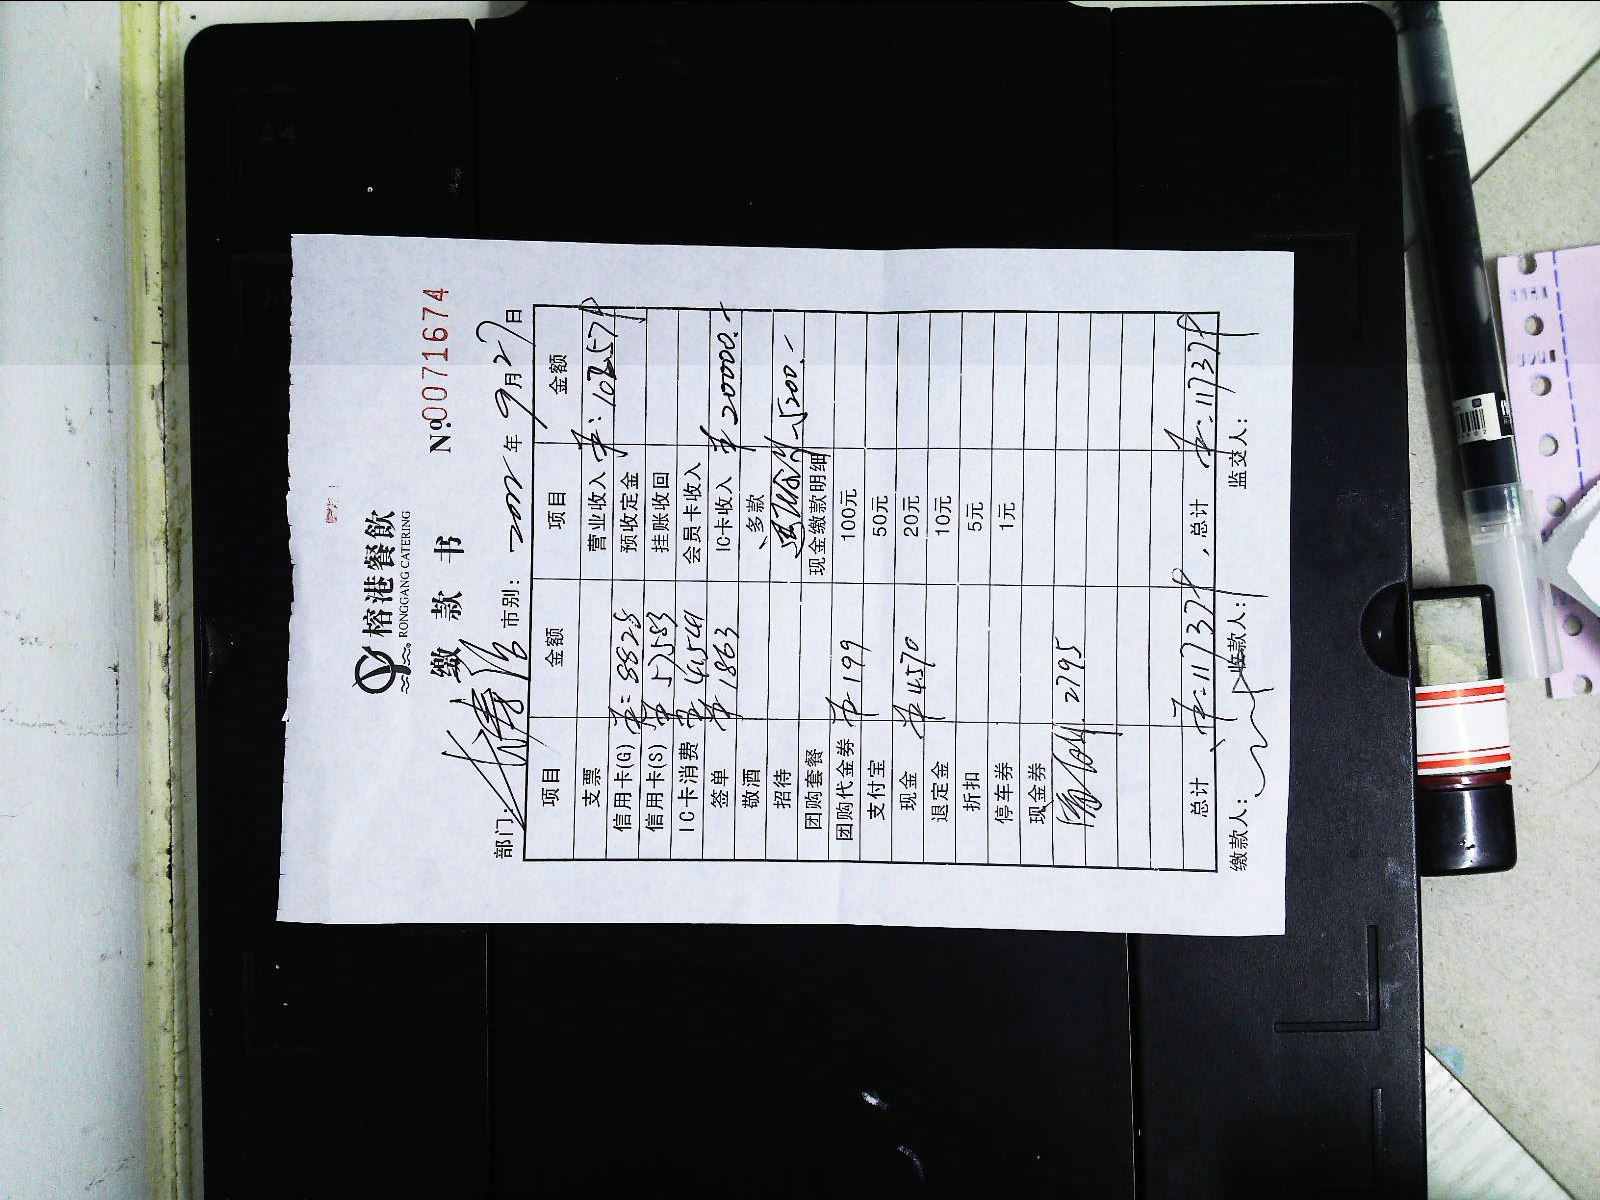 榕港餐飲
RONGGANG CATERING
缴 款 书
No.0071674
部门: 市别: 年 9月27日
项目 金额 项目 金额
支票 营业收入
信用卡(G) 8828 预收定金
信用卡(S) 挂账收回
IC卡消费 会员卡收入
签单 1863 IC卡收入 20000.-
敬酒 、多款
招待
团购套餐 现金缴款明细
团购代金券 199 100元
支付宝 50元
现金 4570 20元
退定金 10元
折扣 5元
停车券 1元
现金券
2795
总计 117379 , 总计 117379
缴款人: 收款人: 监交人:
A4